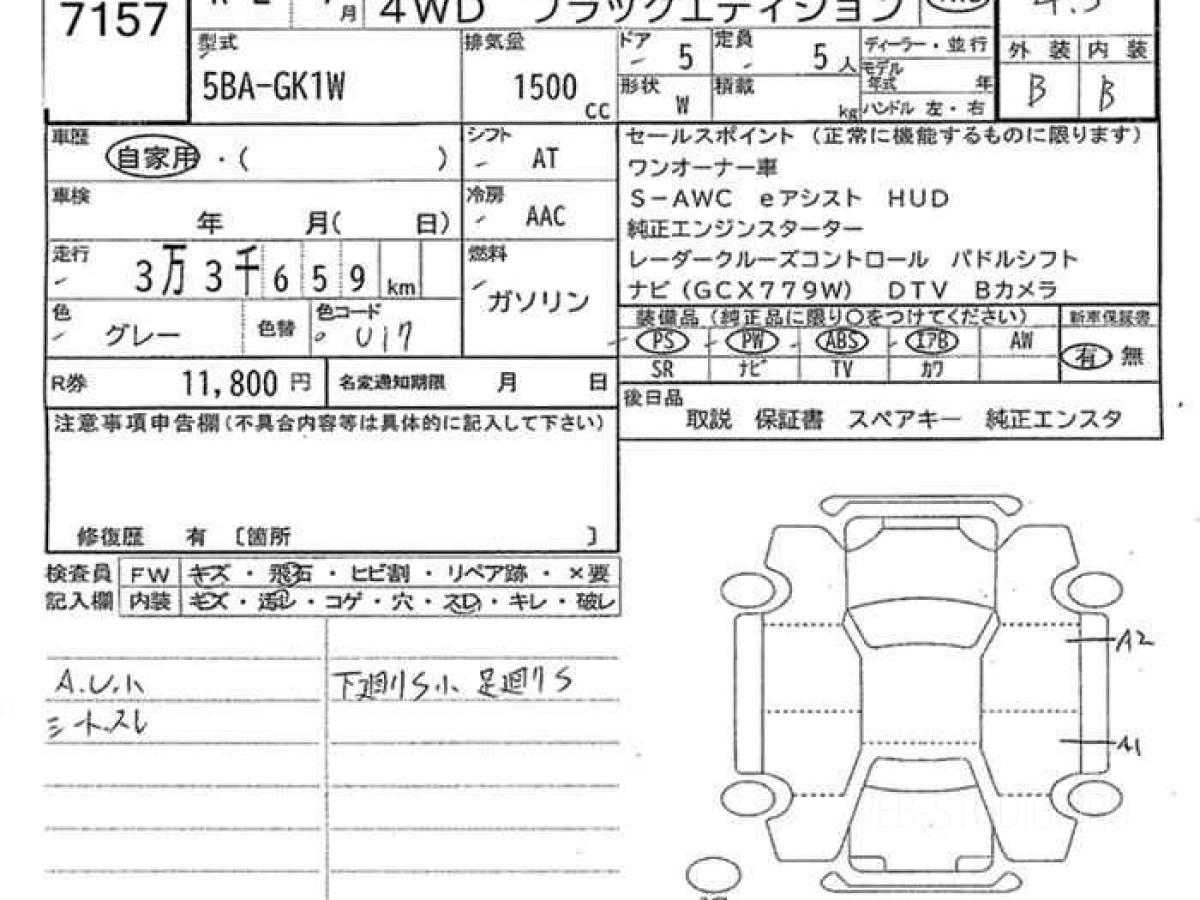 7157
4WD ブラックエディション
月
型式
5BA-GK1W
排気量
1500 cc
ドア 5
定員 5 人
ディーラー・並行
モデル年式 年
形状 W
積載 kg
ハンドル 左・右
外装 内装
B B
車歴 自家用・( )
シフト AT
車検 年 月( 日)
冷房 AAC
走行 3万3千659km
燃料 ガソリン
色 グレー
色替
色コード U17
R券 11,800 円
名変通知期限 月 日
セールスポイント (正常に機能するものに限ります)
ワンオーナー車
S-AWC eアシスト HUD
純正エンジンスターター
レーダークルーズコントロール パドルシフト
ナビ(GCX779W) DTV Bカメラ
装備品(純正品に限り○をつけてください)
新車保証書
PS PW ABS エアB AW
有 無
SR ナビ TV カワ
後日品
取説 保証書 スペアキー 純正エンスタ
注意事項申告欄(不具合内容等は具体的に記入して下さい)
修復歴 有 〔箇所 〕
検査員 FW キズ・飛石・ヒビ割・リペア跡・×要
記入欄 内装 キズ・汚レ・コゲ・穴・スレ・キレ・破レ
A.U.小
シートスレ
下廻りS小、足廻りS
A2
A1